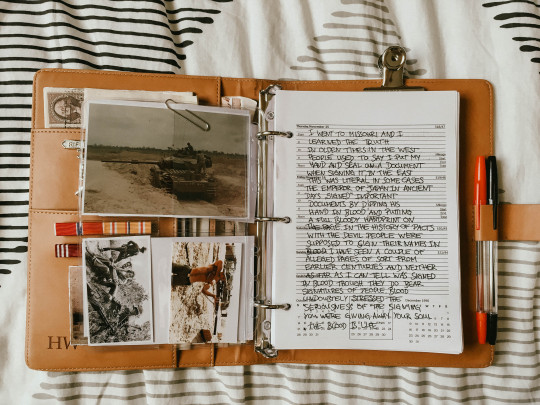 I WENT TO MISSOURI AND I
LEARNED THE TRUTH
IN OLDEN TIMES IN THE WEST
PEOPLE USED TO SAY I PUT MY
HAND AND SEAL ON A DOCUMENT
WHEN SIGNING IT, IN THE EAST
THIS WAS LITERAL IN SOME CASES
THE EMPEROR OF JAPAN IN ANCIENT
DAYS "SIGNED" IMPORTANT
DOCUMENTS BY DIPPING HIS
HAND IN BLOOD AND PUTTING
A FULL BLOODY HANDPRINT ON
THE PAGE IN THE HISTORY OF PACTS
WITH THE DEVIL PEOPLE WERE
SUPPOSED TO SIGN THEIR NAMES IN
BLOOD I HAVE SEEN A COUPLE OF
ALLEGED PAGES OF SORT FROM
EARLIER CENTURIES AND NEITHER
AS FAR AS I CAN TELL WAS SIGNED
IN BLOOD THOUGH THEY DO BEAR
SIGNATURES OF PEOPLE. BLOOD
STRESSED THE
SERIOUSNESS OF THE SIGNING
YOU WERE GIVING AWAY YOUR SOUL
THE BLOOD IS LIFE
HW